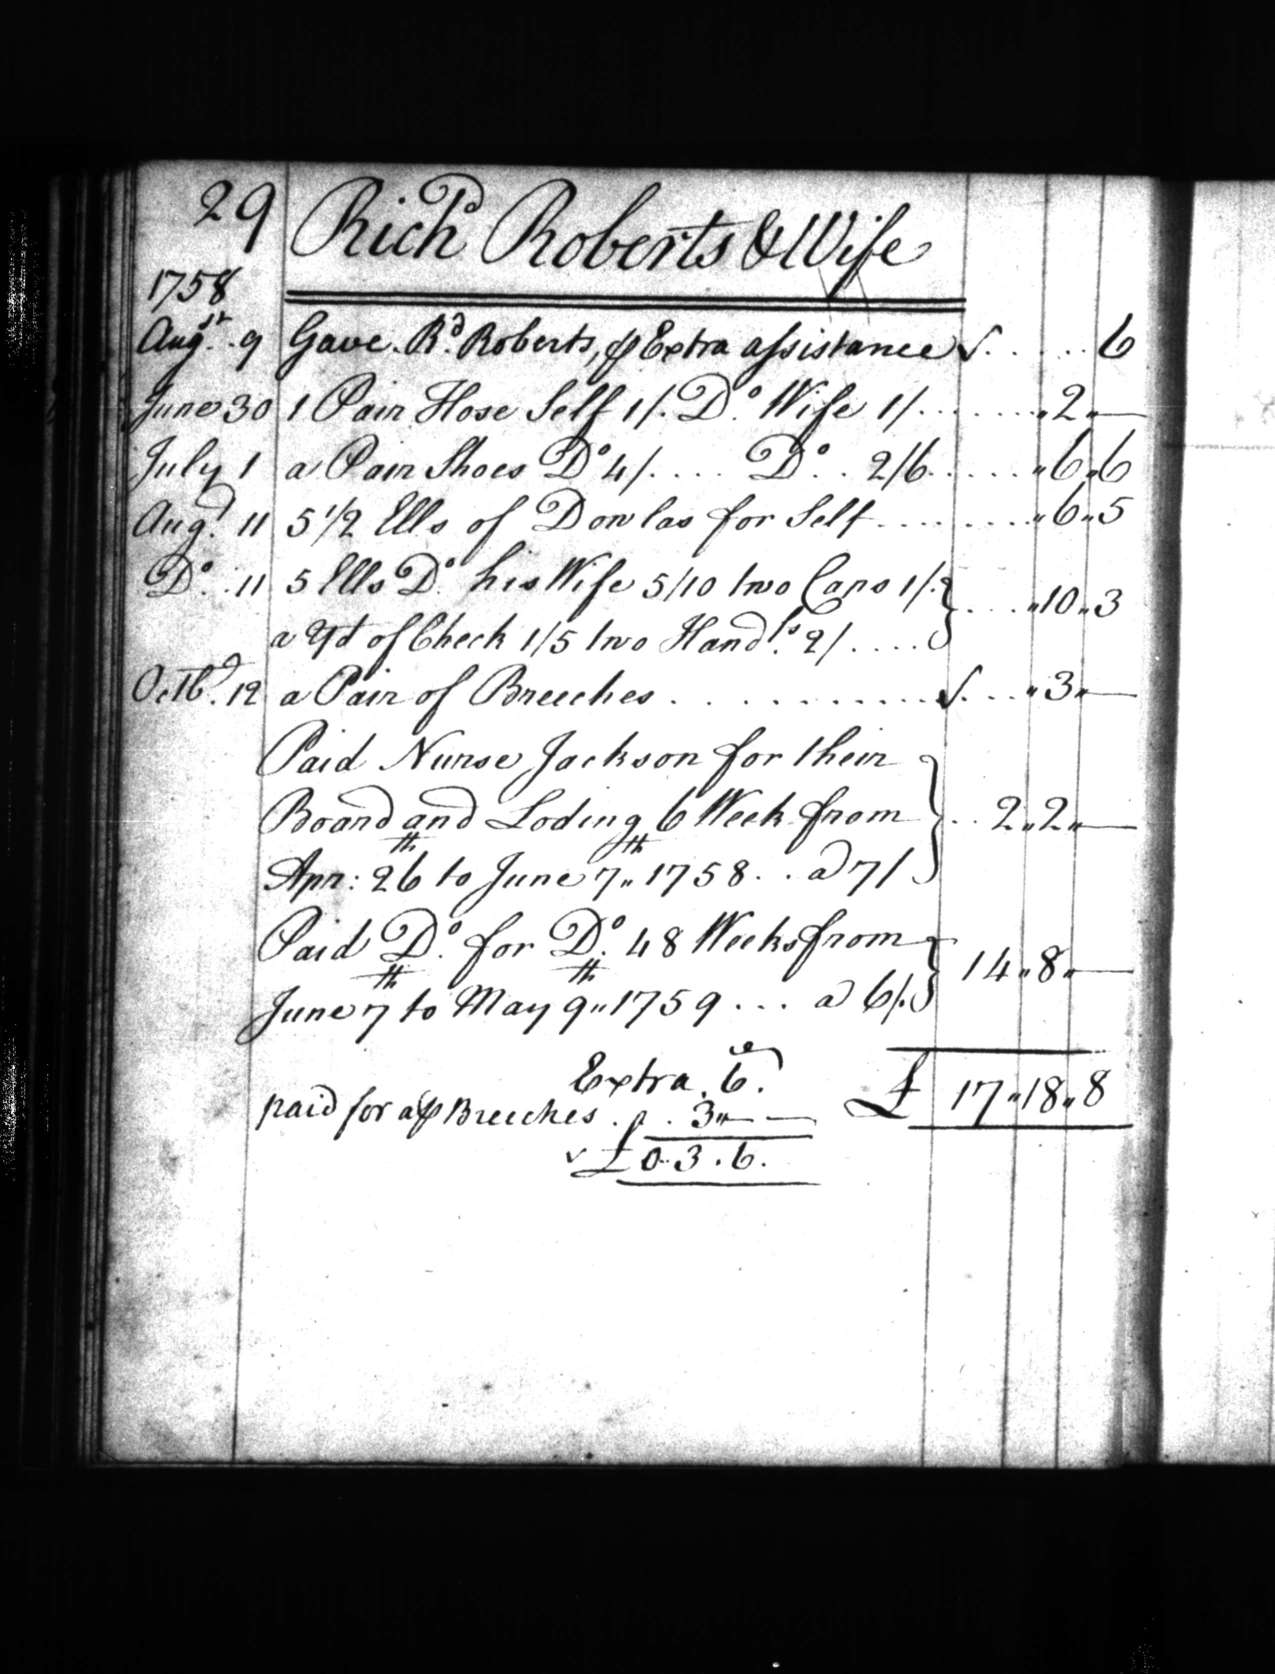 29 Richd Roberts & Wife
1758
Augst. 9 Gave. Rd. Roberts, ꝑ Extra assistance . . . . . 6
June 30 1 Pair Hose Self 1/. Do. Wife 1/. . . . . . . . „ 2 „ —
July 1 a Pair Shoes Do 4/. . . . Do. . 2/6. . . . . . „ 6 „ 6
Augd. 11 5 1/2 Ells of Dowlas for Self . . . . . . . . „ 6 „ 5
Do. . 11 5 Ells Do. his Wife 5/10 two Caps 1/. } . . . . „ 10 „ 3
a Yd of Check 1/5 two Handfs. 2/ . . . .
Octbr. 12 a Pair of Breeches . . . . . . . . . . . . . . „ 3 „ —
Paid Nurse Jackson for their
Board and Loding 6 Week from } . . 2 „ 2 „ —
Apr: 26th to June 7th „ 1758 . . a 7/
Paid Do. for Do. 48 Weeks from } 14 „ 8 „ —
June 7th to May 9th „ 1759 . . . a 6/.
Extra . 6.
£ 17 „ 18 „ 8
paid for a ꝑ Breeches . . 3 „ — —
£ 0 . 3 . 6 .